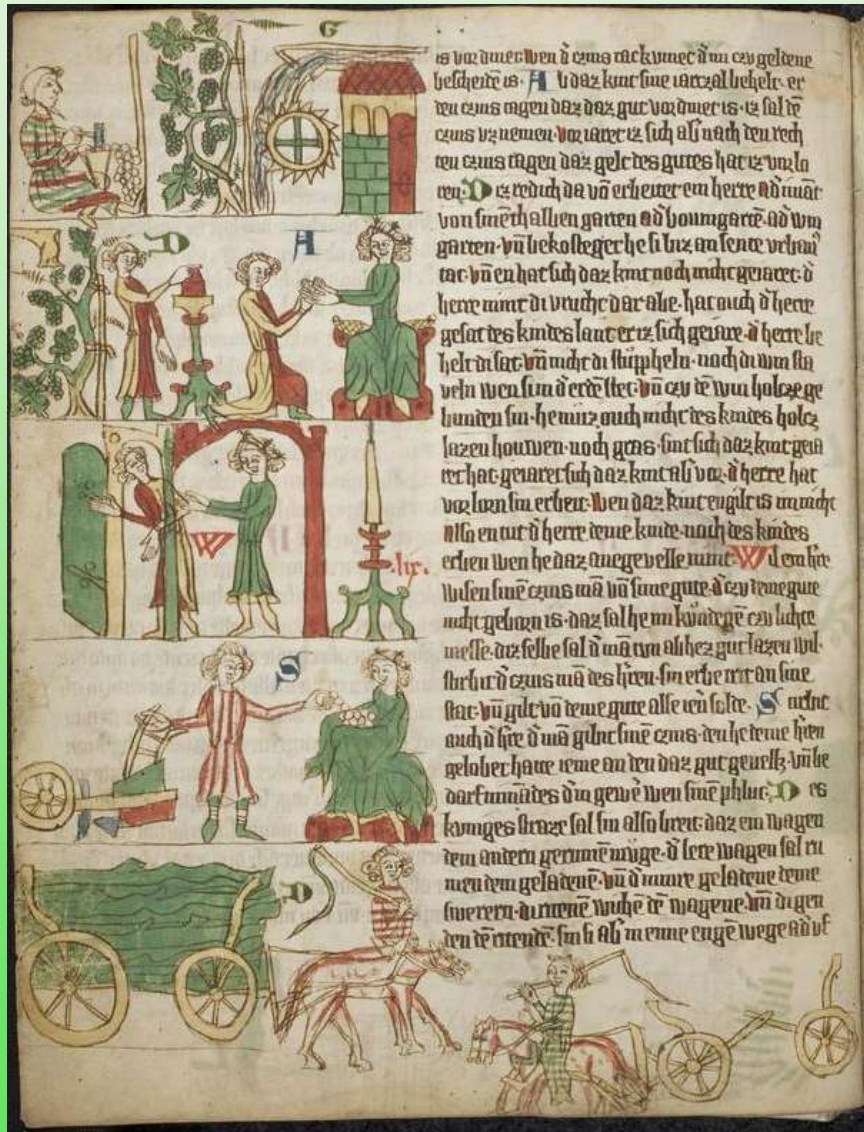 G
D A
W
S
D
is vordinet wen d̄ czins tack kumet d̄ im czu geldene
bescheidē is. A v daz kint sine iarczal behelt. er
den czins tagen daz daz gut vordinet is. iz sal dē
czins vz nemen. vor iaret iz sich ab̄ nach den rech
ten czins tagen daz gelt des gutes hat iz vorlo
ren. D iz redich da vō erbeitet ein herre ad̄
von sinē halben garten ad̄ boumgartē. ad̄ win
garten. vn̄ bekosteget he si biz an sente vrban᷒
tac. vn̄ en hat sich daz kint noch nicht geiaret. d̄
herre nimt di vrucht dar abe. hat ouch d̄ herre
gesat des kindes lant er iz sich geiare. d̄ herre be
helt di sat. vn̄ nicht di stuppheln. noch di win sta
veln wen si in d̄ erde stet. vn̄ czu dē win holcze ge
bunden sin. he muz ouch nicht des kindes holcz
lazen houwen. noch gras. sint sich daz kint geia
ret hat. geiaret sich daz kint ab̄ vor. d̄ herre hat
vorlorn sin erbeit. wen daz kint engilt is im nicht
Also en tut d̄ herre deme kinde. noch des kindes
erben wen he daz anegevelle nimt. W il ein h̄re
wisen sinē czins mā vō sime gute. d̄ czu deme gute
nicht geborn is. daz sal he im kundegē czu lichte
messe. diz selbe sal d̄ mā tun ab hez gut lazen wil.
stirbit d̄ czins mā des h̄ren. sin erbe trit an sine
stat. vn̄ gilt vō deme gute alse iēn solde. S tirbit
auch d̄ h̄re d̄ mā gibit sinē czins. den he deme h̄ren
gelobet hatte ieme an den daz gut gevelt. vn̄ be
darf nimādes d̄ in gewē wen sinē phluc. D es
kuniges straze sal sin also breit. daz ein wagen
dem andern gerumē muge. d̄ lere wagen sal ru
men dem geladenē. vn̄ d̄ minre geladene deme
swerern. di ritenē wichē dē wagene. vn̄ di gen
den dē ritende. sin si ab̄ in eime engē wege ad̄ vf